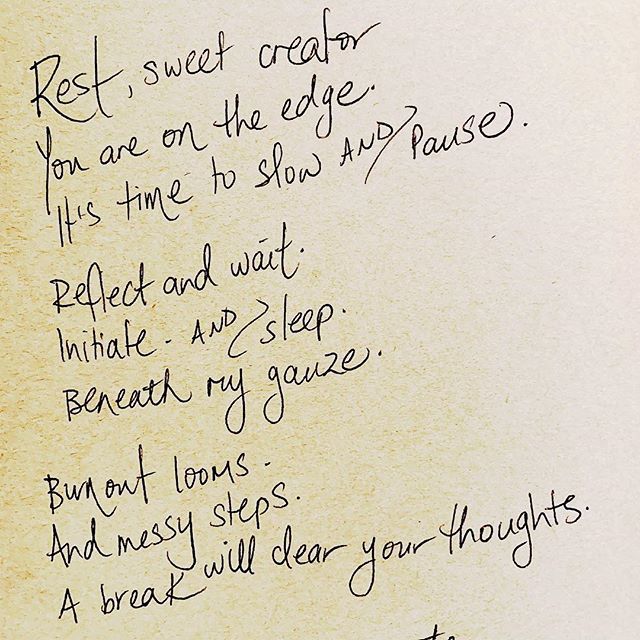 Rest, sweet creator
You are on the edge.
It's time to slow AND pause.
Reflect and wait.
Initiate - AND sleep.
Beneath my gauze.
Burnout looms.
And messy steps.
A break will clear your thoughts.